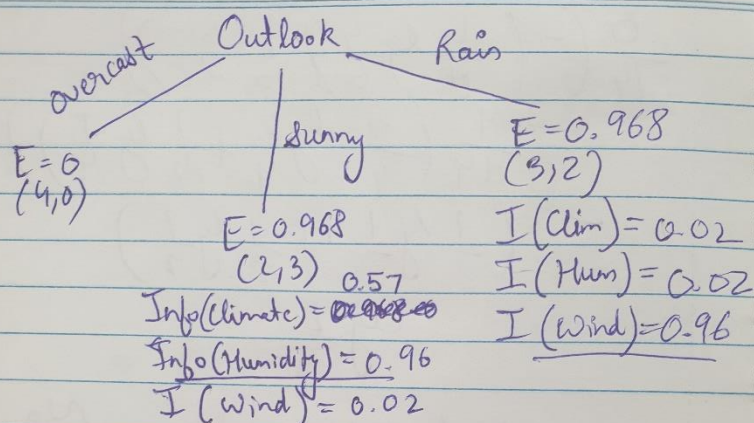 Outlook
overcast
Rain
sunny
E = 0
(4,0)
E = 0.968
(2,3)
0.57
Info(Climate) =
Info(Humidity) = 0.96
I (Wind) = 0.02
E = 0.968
(3,2)
I (Clim) = 0.02
I (Hum) = 0.02
I (Wind) = 0.96